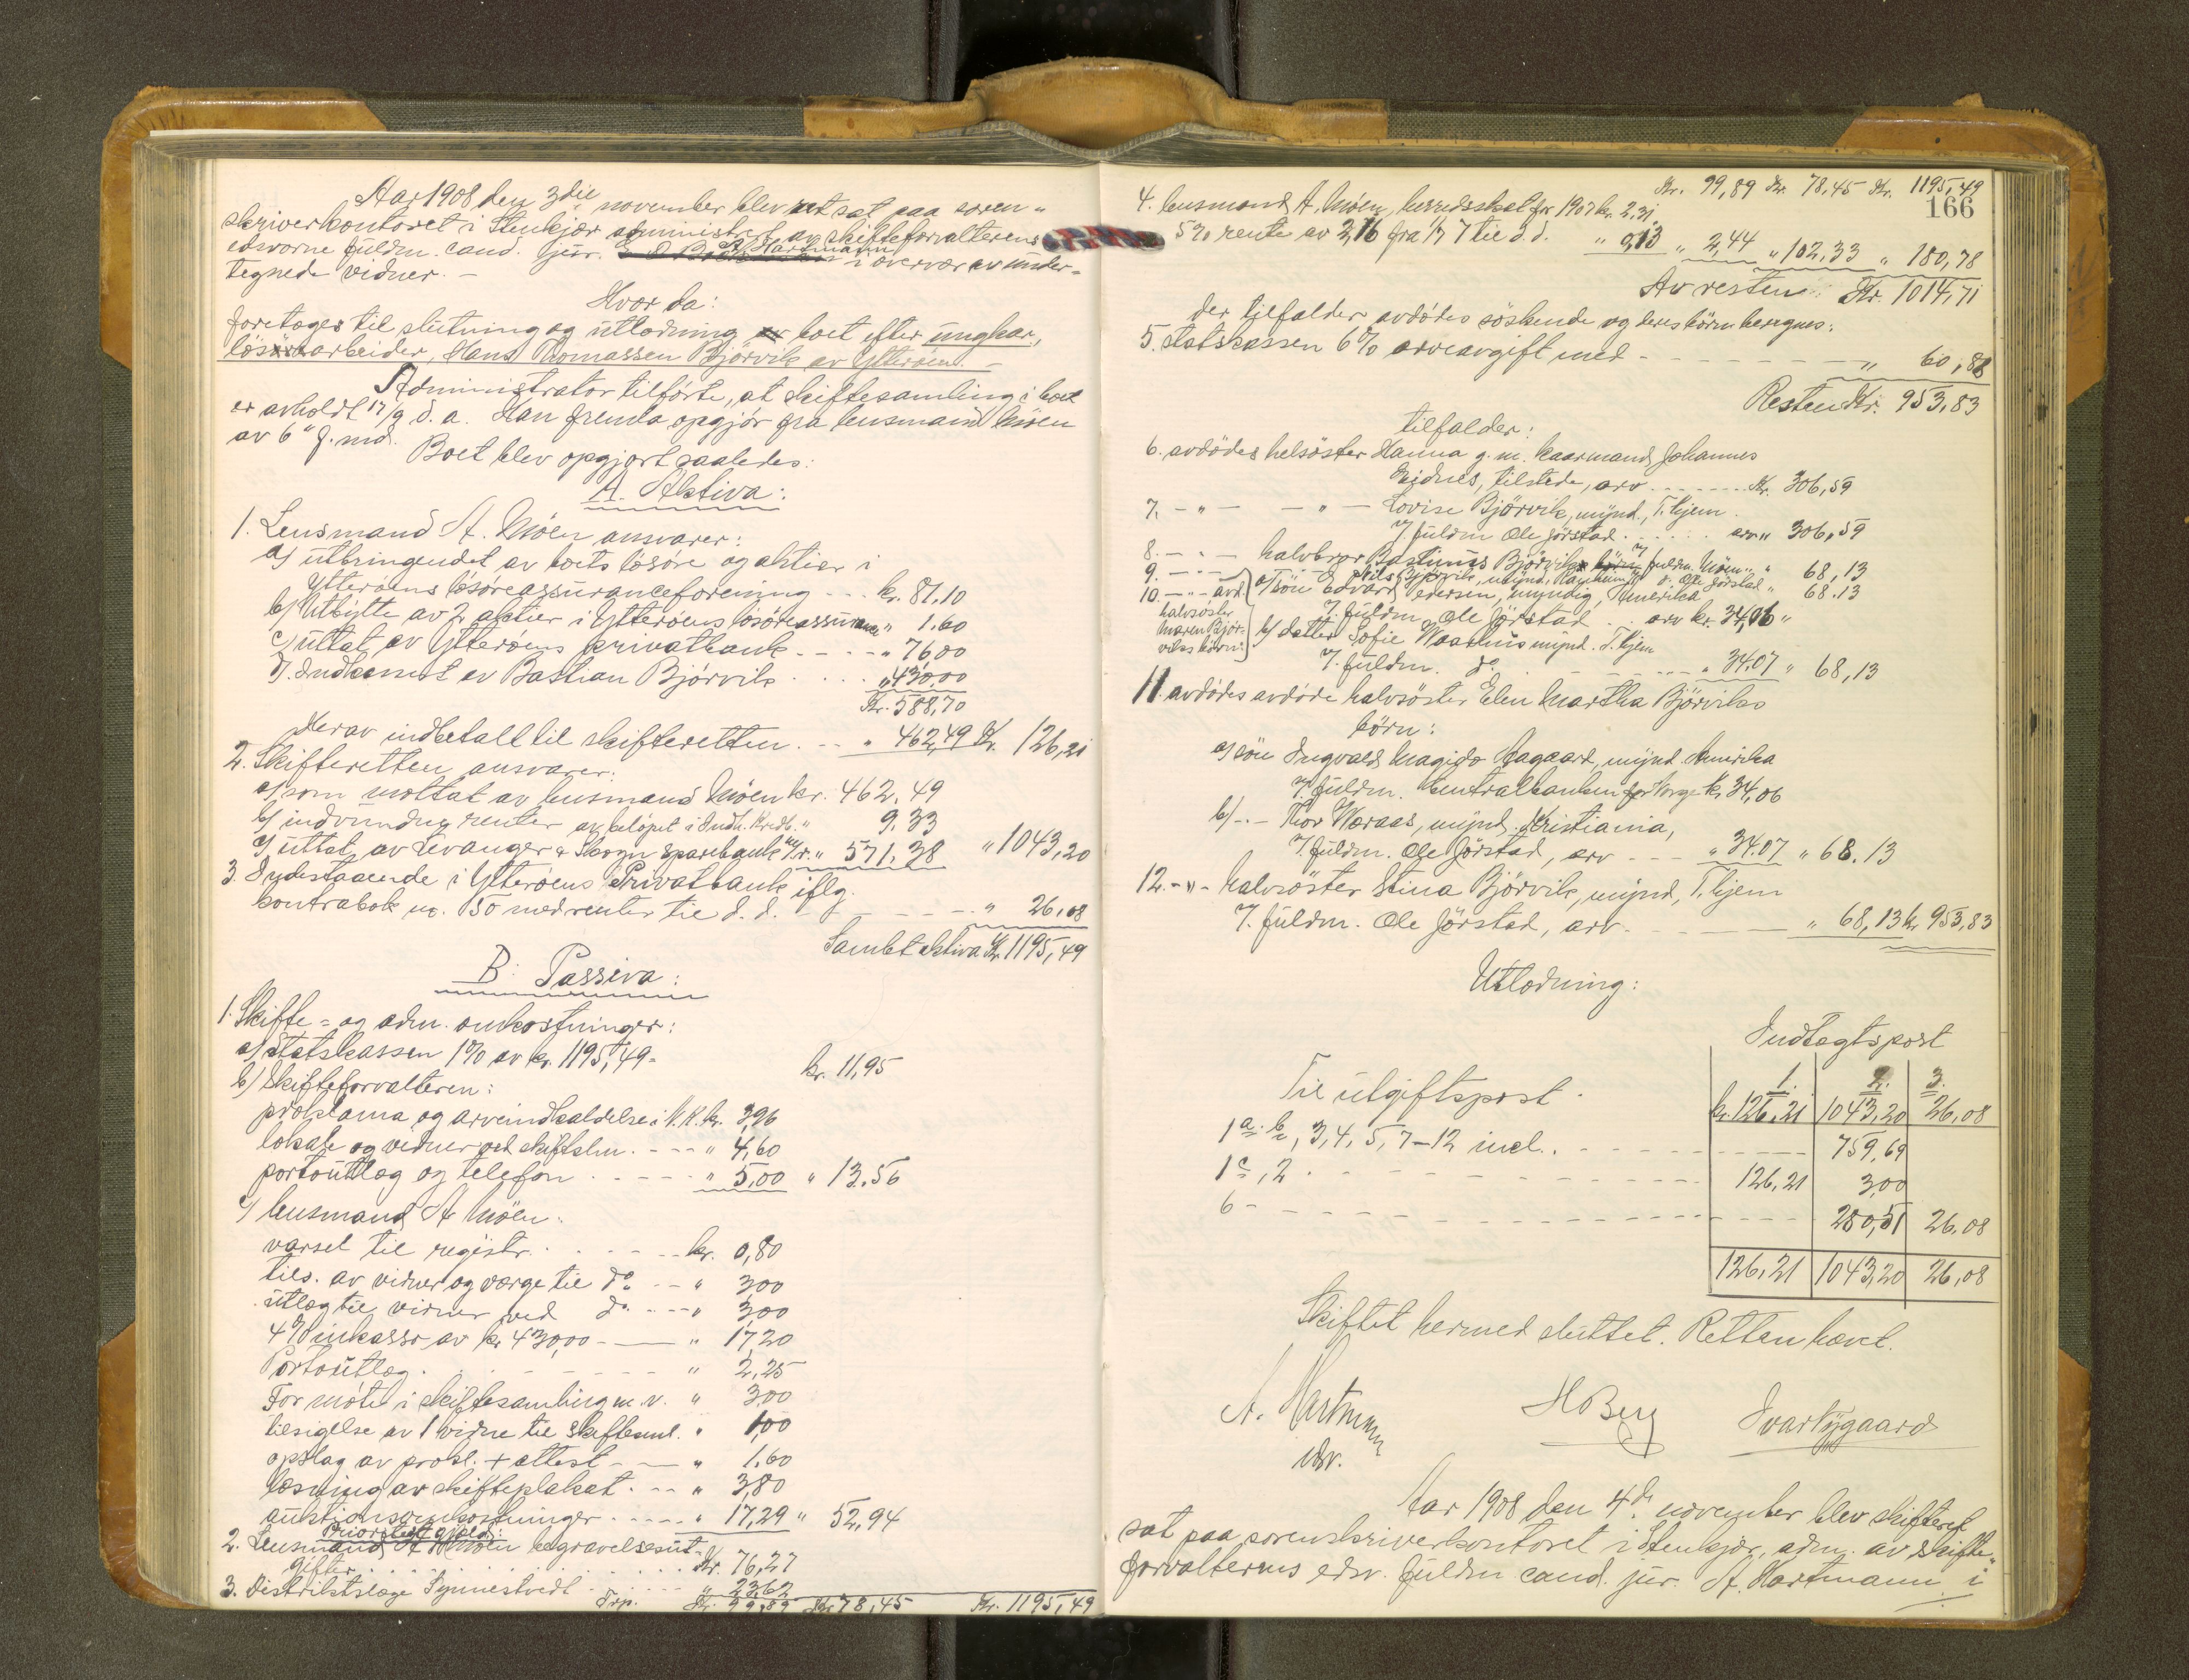 Aar 1908 den 3die november blev ret sat paa soren-
skriverkontoret i Stenkjær administrert av skifteforvalterens
edsvorne fuldm. cand. jur. A. Hartmann i overvær av under-
tegnede vidner. -
Hvor da:
foretoges til slutning og utlodning boet efter ungkar,
lösarbeider, Hans Thomassen Björvik av Ytteröen. -
Administrator tilförte, at skiftesamling i boet
er avholdt 17/9 d. a. Han fremla opgjör fra lensmand Möen
av 6" f. md.
Boet blev opgjort saaledes:
A. Aktiva:
1. Lensmand A. Möen ansvarer:
a) utbringendet av boets lösöre og aktier i
Ytteröens lösöreassuranceforening - - - kr. 81,10
b) Utbytte av 2 aktier i Ytteröens lösöreassurance " 1.60
c) uttat av Ytteröens privatbank - - - - " 76.00
d) Indkassert av Bastian Björvik . . . . " 430.00
Kr. 588,70
Herav indbetalt til skifteretten. - - " 462,49 Kr. 126,21
2. Skifteretten ansvarer:
a) som mottat av lensmand Möen kr. 462,49
b) indvundne renter av belöpet i Indh. Kredb. " 9.33
c) uttat av Levanger & Skogn sparebank m/r. " 571,38 " 1043,20
3. Indestaaende i Ytteröens Privatbank iflg.
kontrabok no. 150 med renter til d. d. - - - - - " 26,08
Samlet aktiva Kr. 1195,49
B. Passiva:
1. Skifte- og adm. omkostninger:
a) Statskassen 1% av kr. 1195,49 -
kr. 11,95
b) Skifteforvalteren:
proklama og arveindkaldelse i N. K. kr. 3,96
lokale og vidner ved skiftslm. - - - " 4,60
portoutlæg og telefon . - - - - " 5,00 " 13.56
c) lensmand A Möen:
varsel til registr. . - - - - - kr. 0,80
tils. av vidner og værge til do. - - " 3,00
utlæg til vidner ved do. - - - " 3,00
4% inkasso av kr 430,00 - - " 17,20
Portoutlæg . . - - - - - " 2,25
For möte i skiftesamling m. v. " 3.00
tilsigelse av 1 vidne til skiftesml. " 1,00
opslag av prokl. + attest - - - " 1.60
læsning av skifteplakat . - - " 3,80
auktionsomkostninger - - - - - " 17,29 " 52,94
Prioritert gjæld:
2. Lensmand A Möen begravelsesut-
gifter . . . . . . . . Kr. 76,27
3. Distriktslæge Tynnestvedt - . . . . " 23,62
Trp. Kr. 99,89 Kr 78,45 Kr. 1195,49
Kr. 99,89 Kr. 78,45 Kr. 1195,49
166
4. lensmand A. Möen, herredsskat for 1907 kr. 2.31
5% rente av 2,16 fra 1/7 7 til d. d. " 0,13 " 2,44 " 102,33 " 180,78
Av resten: Kr. 1014,71
der tilfalder avdödes söskende og deres börn beregnes:
5. Statskassen 6% arveavgift med - - - - - - - " 60,88
Resten Kr. 953,83
tilfalder:
6. avdödes helsöster Hanna g. m. kaarmand Johannes
Eidnes, tilstede, arv - - - - - - Kr. 306,59
7. - " - - " - Lovise Björvik, mynd., T.hjem.
f. fuldm Ole Jörstad . . . . . arv " 306,59
8. - - - halvbror Bastinus Björvik f. fuldm. Möen " 68,13
9. - - - Nils Björvik, mynd, Ranheim, f. do. Ole Jörstad " 68.13
10. - " - avd. halvsöster Maren Björviks börn:
a) Sön Edvard Pedersen, myndig, Amerika
f. fuldm Ole Jörstad . . arv kr. 34,06 "
b) datter Sofie Waathus mynd. T.hjem
f. fuldm. do. - - - - " 34.07 " 68,13
11. avdödes avdöde halvsöster Elen Martha Björviks
börn:
a) sön Ingvald Hagaard, mynd. Amerika
f. fuldm. Centralbanken for Norge kr. 34,06
b) - - Thor Woraas, mynd. Kristiania,
f. fuldm. Ole Jörstad, arv - - - " 34.07 " 68.13
12. - " - halvsöster Stina Björvik, mynd, T.hjem
f. fuldm. Ole Jörstad, arv. - - - - " 68,13 kr. 953,83
Utlodning:
Indtægtspost
Til utgiftspost . 1. 2. 3.
kr. 126,21 1043,20 26,08
1 a. b, 3, 4, 5, 7-12 incl. . - - - - 759,69
1 c, 2 . - - - - 126,21 3,00
6 - - - - - 280,51 26,08
126,21 1043,20 26,08
Skiftet hermed sluttet. Retten hævet.
A. Hartmann
edsv.
H Berg
Ivar Nygaard
Aar 1908 den 4de november blev skifteret
sat paa sorenskriverkontoret i Stenkjær, adm. av skifte-
forvalterens edsv. fuldm cand. jur. A. Hartmann i